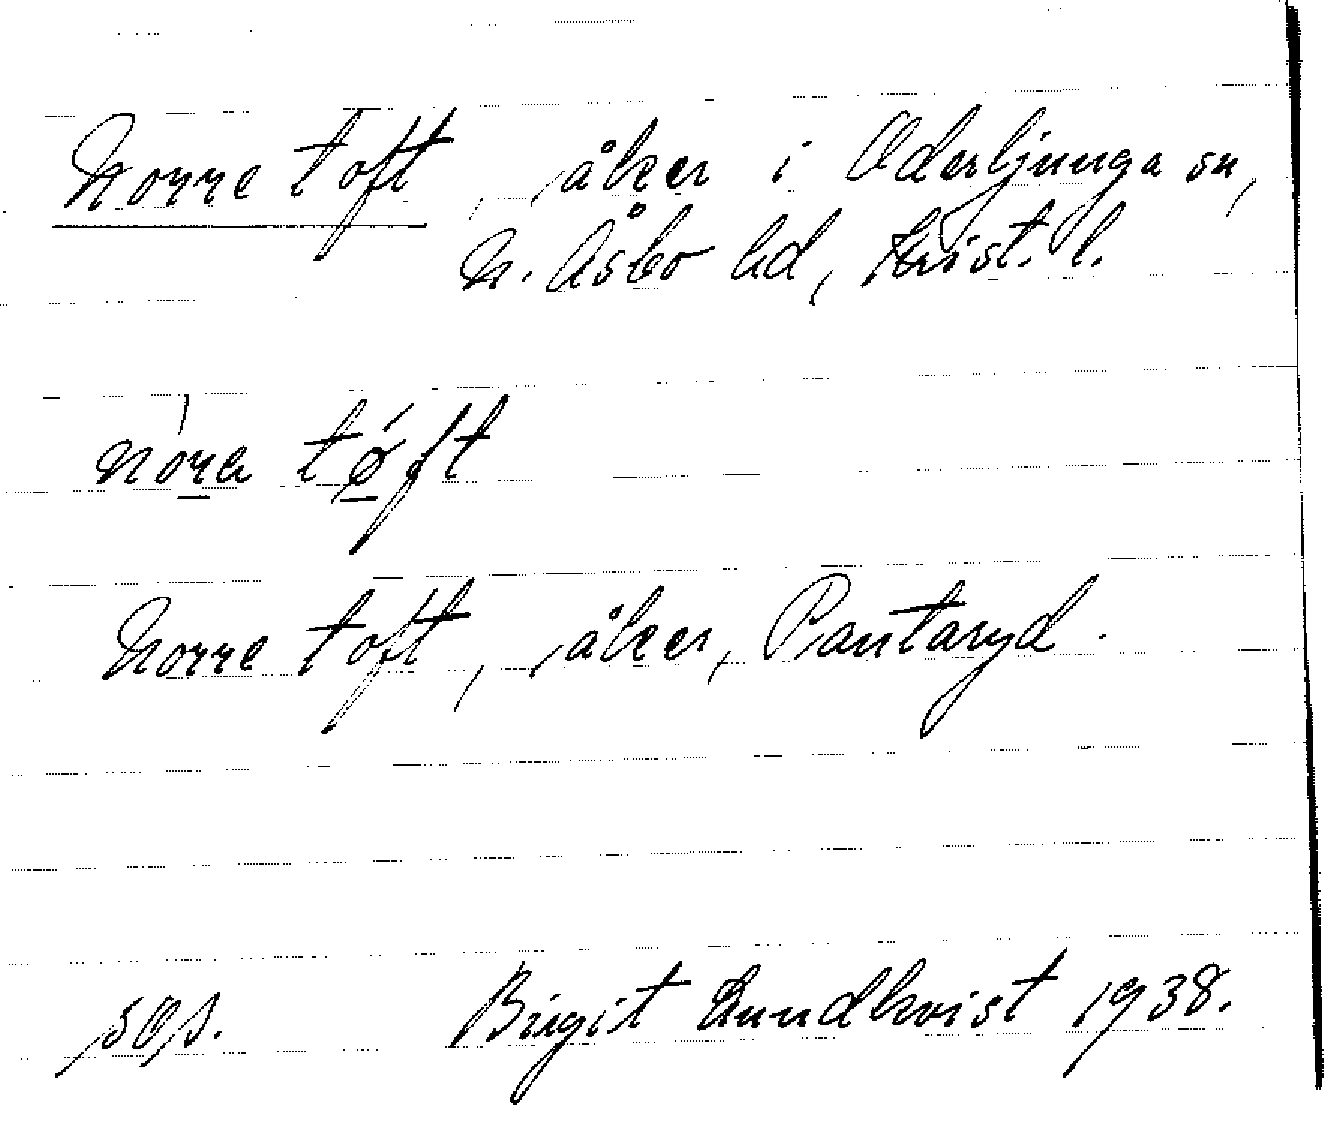 Norre toft, åker i Oderljunga sn,
N. Åsbo hd, Krist. l.
nora tøft
Norre toft, åker, Pantaryd.
Birgit Lundkvist 1938.